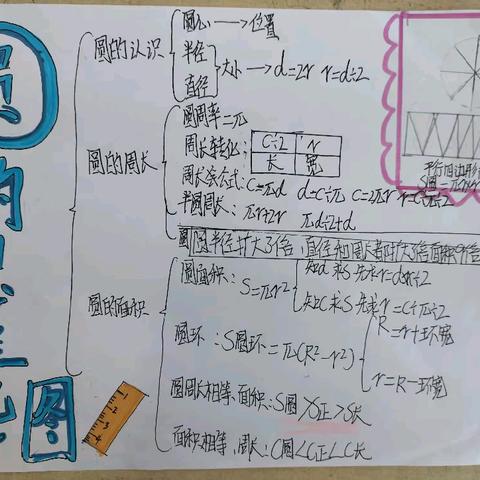 圆的
图
圆的认识
圆心——>位置
半径
直径
大小——>d=2r r=d÷2
圆的周长
圆周率=π
周长转化:
C÷2 r
长 宽
周长公式:C=πd d=C÷π C=2πr r=C÷π÷2
半圆周长:πr+2r πd÷2+d
圆的面积
圆面积:S=πr²
知d求S先求r=d÷2
知C求S先求r=C÷π÷2
圆环:S圆环=π(R²-r²)
R=r+环宽
r=R-环宽
圆周长相等、面积:S圆>S正>S长
面积相等、周长:C圆<C正<C长
平行四边形